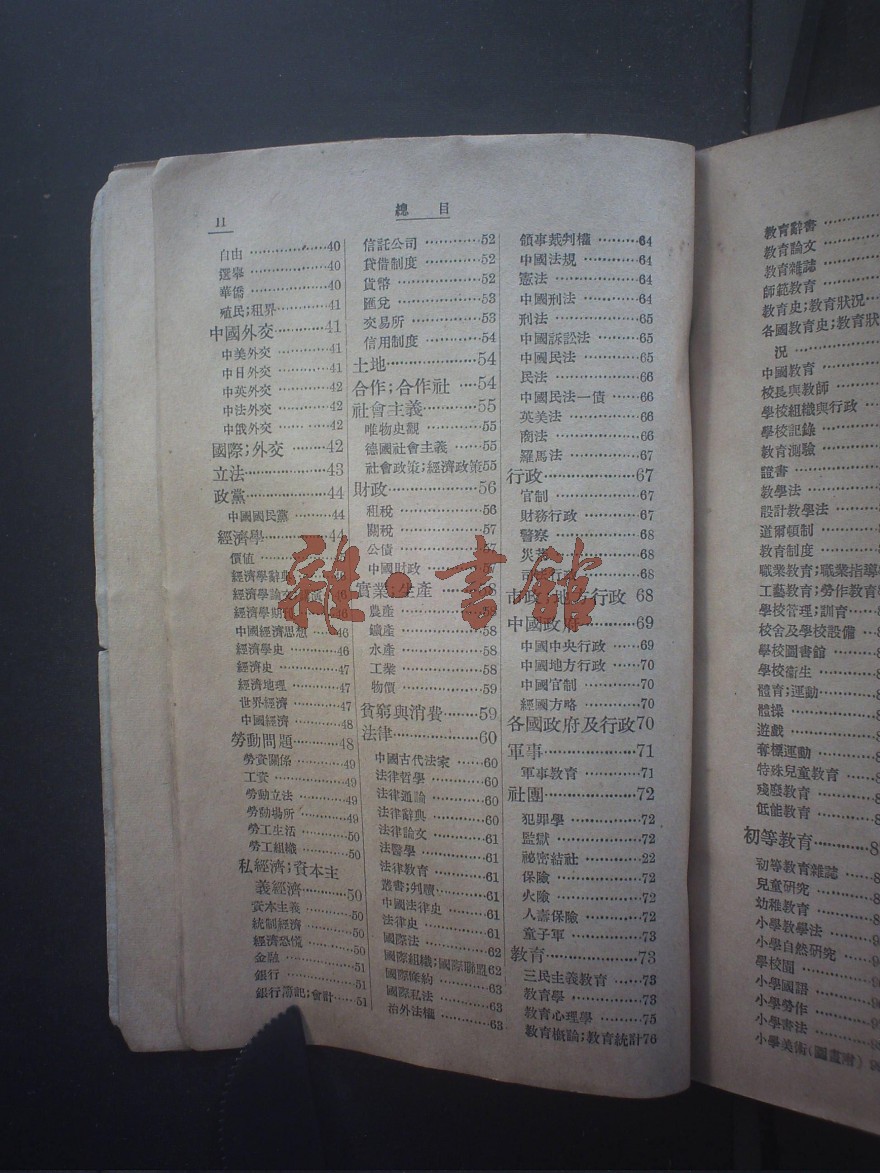 11
總目
自由 40
選舉 40
華僑 40
殖民;租界 41
中國外交 41
中美外交 41
中日外交 41
中英外交 42
中法外交 42
中俄外交 42
國際;外交 42
立法 43
政黨 44
中國國民黨 44
經濟學 44
價值
經濟學辭典
經濟學論文 46
經濟學期刊 46
中國經濟思想 46
經濟學史 46
經濟史 47
經濟地理 47
世界經濟 47
中國經濟 48
勞動問題 48
勞資關係 49
工資 49
勞動立法 49
勞動場所 49
勞工生活 50
勞工組織 50
私經濟;資本主
義經濟 50
資本主義 50
統制經濟 50
經濟恐慌 50
金融 51
銀行 51
銀行簿記;會計 51
信託公司 52
貸借制度 52
貨幣 52
匯兌 53
交易所 53
信用制度 54
土地 54
合作;合作社 54
社會主義 55
唯物史觀 55
德國社會主義 55
社會政策;經濟政策55
財政 56
租稅 56
關稅 57
公債 57
中國財政 57
實業;生產
農產
鑛產 58
水產 58
工業 58
物價 59
貧窮與消費 59
法律 60
中國古代法家 60
法律哲學 60
法律通論 60
法律辭典 60
法律論文 61
法醫學 61
法律教育 61
叢書;判牘 61
中國法律史 61
法律史 61
國際法 62
國際組織;國際聯盟62
國際條約 63
國際私法 63
治外法權 63
領事裁判權 64
中國法規 64
憲法 64
中國刑法 65
刑法 65
中國訴訟法 65
中國民法 65
民法 66
中國民法—債 66
英美法 66
商法 66
羅馬法 67
行政 67
官制 67
財務行政 67
警察 68
68
68
市政;地方行政 68
中國政府 69
中國中央行政 69
中國地方行政 70
中國官制 70
經國方略 70
各國政府及行政70
軍事 71
軍事教育 71
社團 72
犯罪學 72
監獄 72
祕密結社 22
保險 72
火險 72
人壽保險 72
童子軍 73
教育 73
三民主義教育 73
教育學 73
教育心理學 75
教育概論;教育統計76
雜·書館
教育辭書
教育論文
教育雜誌
師範教育
教育史;教育狀況
各國教育史;教育狀
況
中國教育
校長與教師
學校組織與行政
學校記錄
教育測驗
證書
教學法
設計教學法
道爾頓制
教育制度
職業教育;職業指導
工藝教育;勞作教育
學校管理;訓育
校舍及學校設備
學校圖書館
學校衛生
體育;運動
體操
遊戲
奪標運動
特殊兒童教育
殘廢教育
低能教育
初等教育
初等教育雜誌
兒童研究
幼稚教育
小學教學法
小學自然研究
學校園
小學國語
小學勞作
小學書法
小學美術(圖畫附)